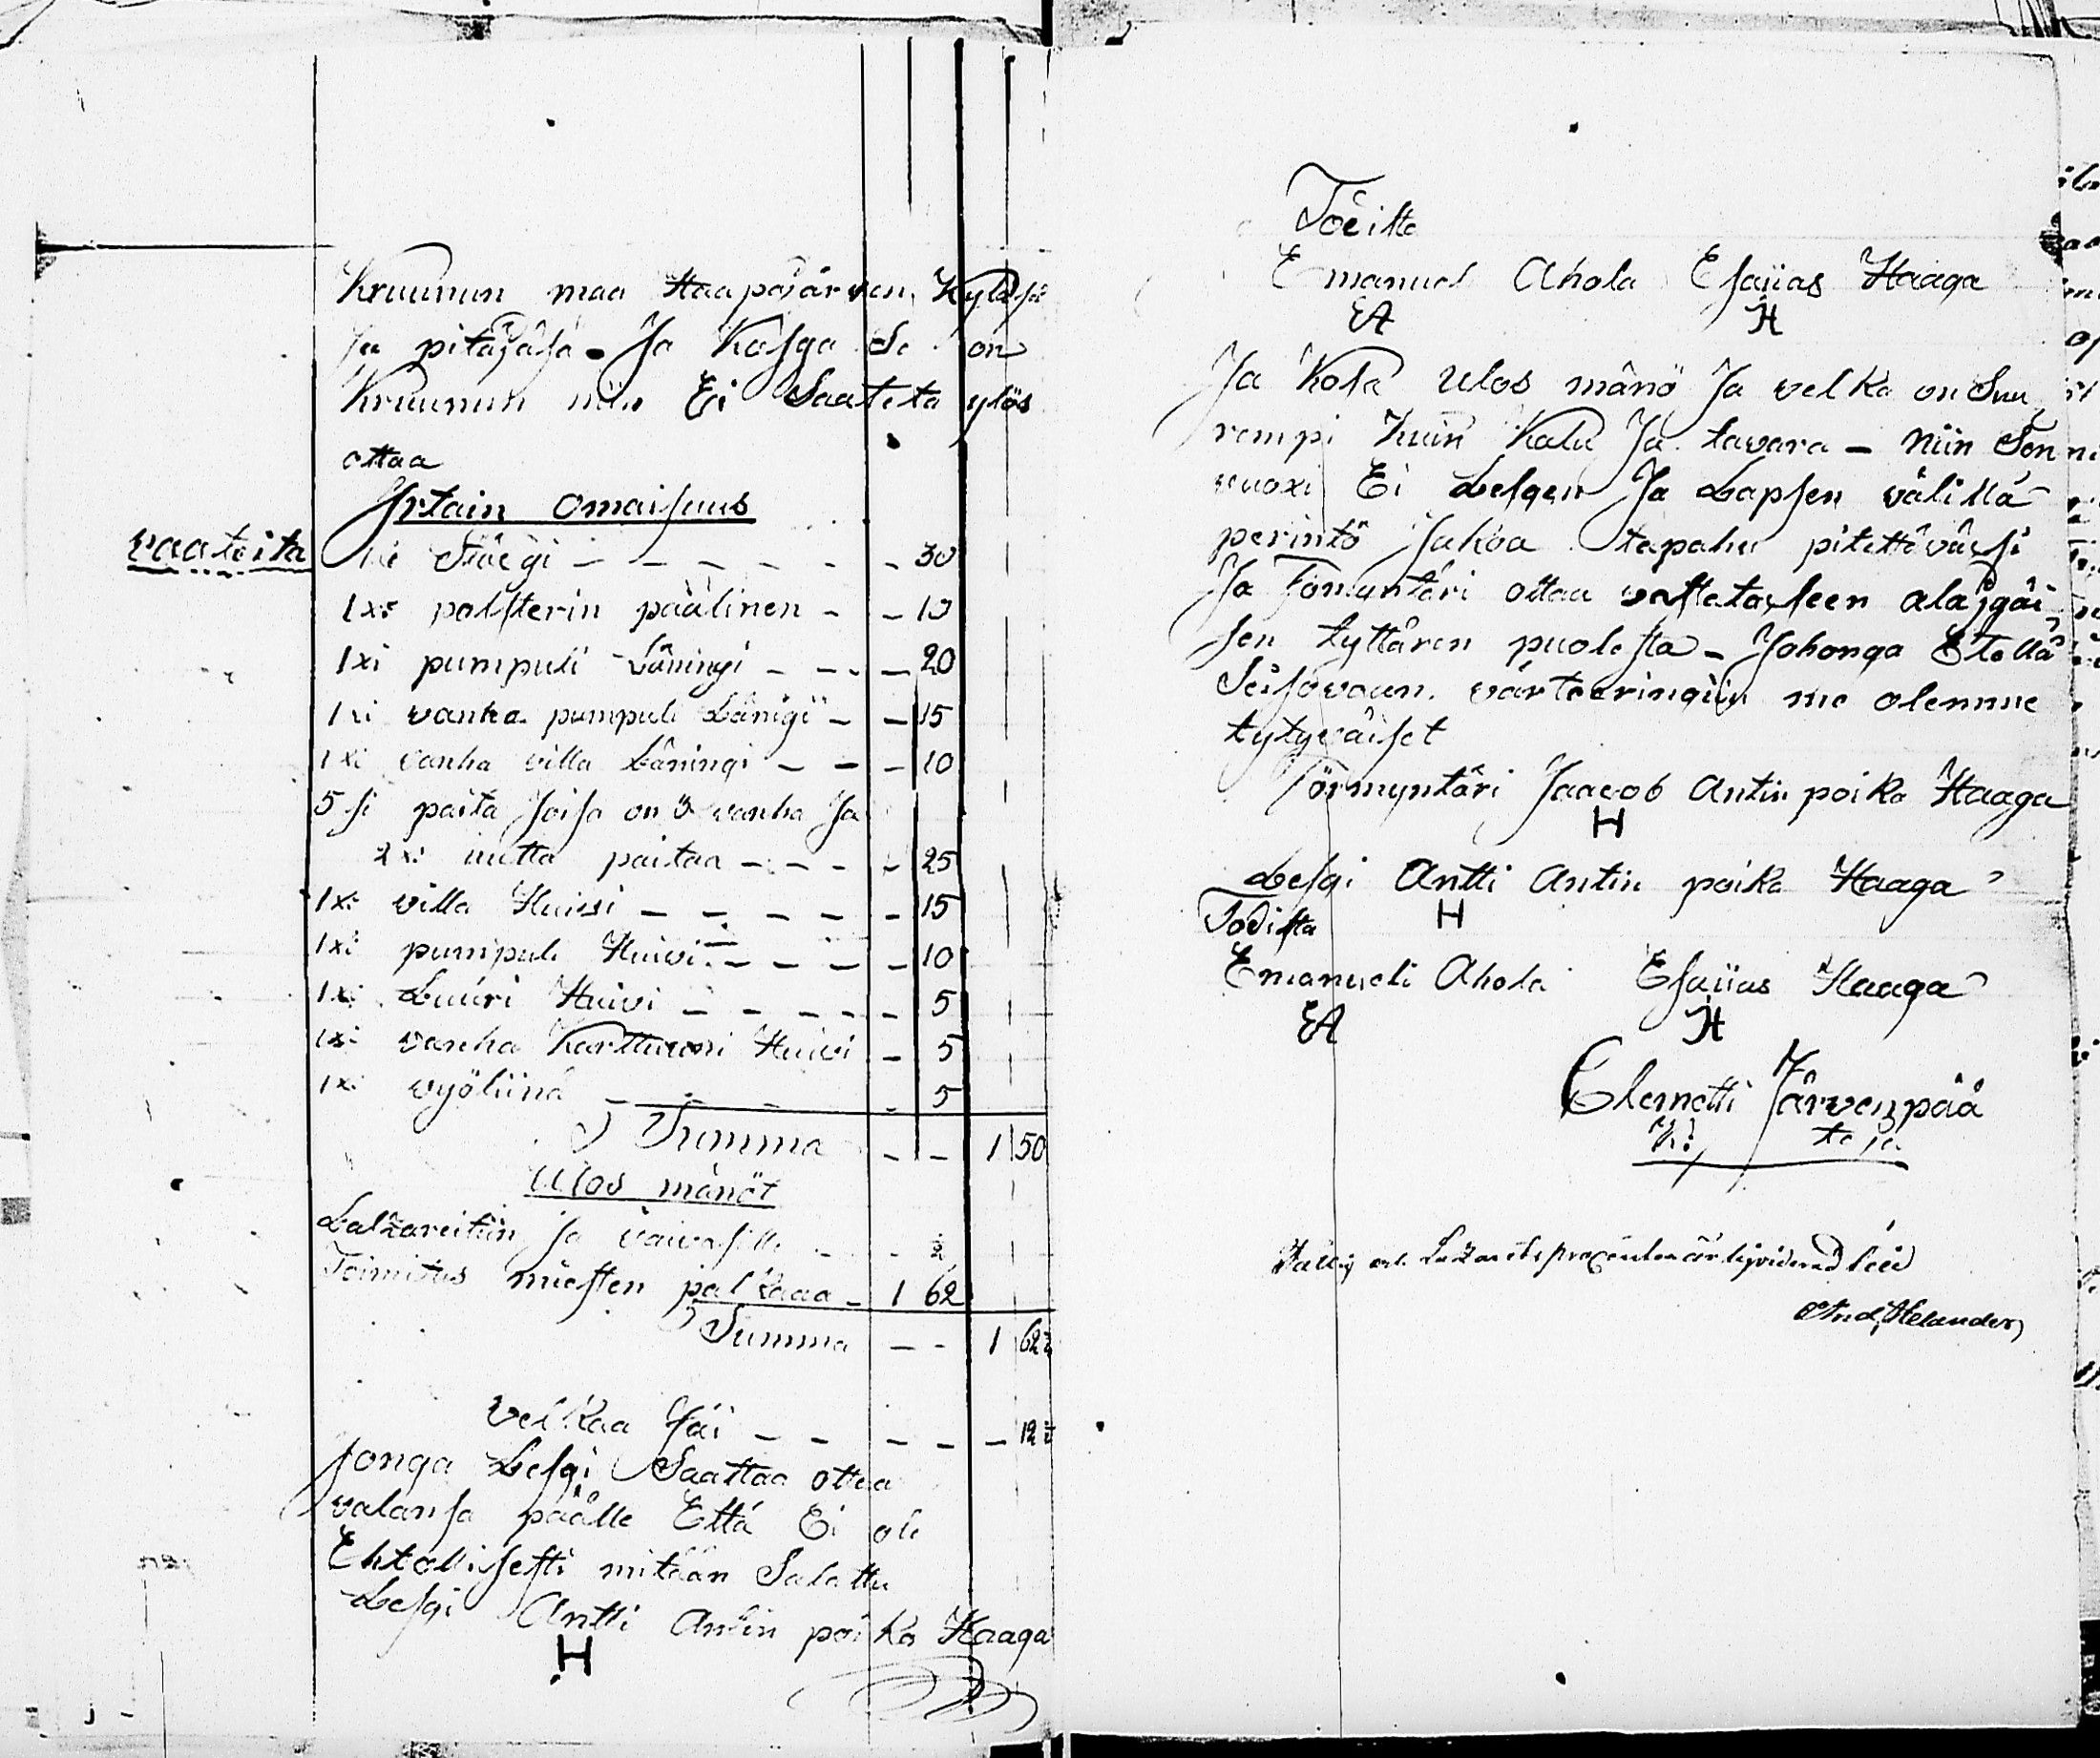 Kruunun maa Haapajärven Kyläsä
ja pitäjäsä. Ja Kosga Se on
Kruunun niin Ei Saateta ylös
ottaa
Jrtain omaisuus
vaateita 1xi Röigi - - - - - - 30
1xi polsterin päälinen - - 10
1xi pumpuli Läningi - - - - 20
1xi vanha pumpuli Länigi - - 15
1xi vanha villa Läningi - - - 10
5si paita Joisa on 3 vanha Ja
2xi uutta paitaa - - - - 25
1xi villa Huivi - - - - - 15
1xi pumpuli Huivi - - - - 10
1xi Luuri Huivi - - - - - 5
1xi vanha Karttuuni Huivi - 5
1xi vyöliina - - - - 5
Summa - - 1 50
Ulos mänöt
Latzareitiin ja vaivasille - - - 2
Toimitus miesten palkkaa - 1 62
Summa - - 1 62
velkaa Jäi - - - - - 12
Jonga Lesgi Saattaa ottaa
valansa päälle Että Ei ole
Ehtollisesti mitään Salattu
Lesgi Antti Antin poika Haaga
H
Toëista
Emanuel Ahola Esaiias Haaga
EA H
Ja Kosa Ulos mänö Ja velka on Suu
rempi kuin Kalu Ja tavara - Niin Sen
vuoxi Ei Lesgen Ja Lapsen välillä
perintö Jakoa tapahu pitettäväxsi
Ja Fömyntäri ottaa vastataxseen alaijgäi
sen tyttären puolesta - Johonga Etellä
Seisovaan värteeringiin me olemme
tytyväiset
Förmyntäri Jaacob Antin poika Haaga
H
Lesgi Antti Antin poika Haaga
H
Todista
Emanueli Ahola Esaiias Haaga
EA H
Clemetti Järvenpää
Ki taja
Fattig och Lazarets procenten är liqviderad
And. Helander